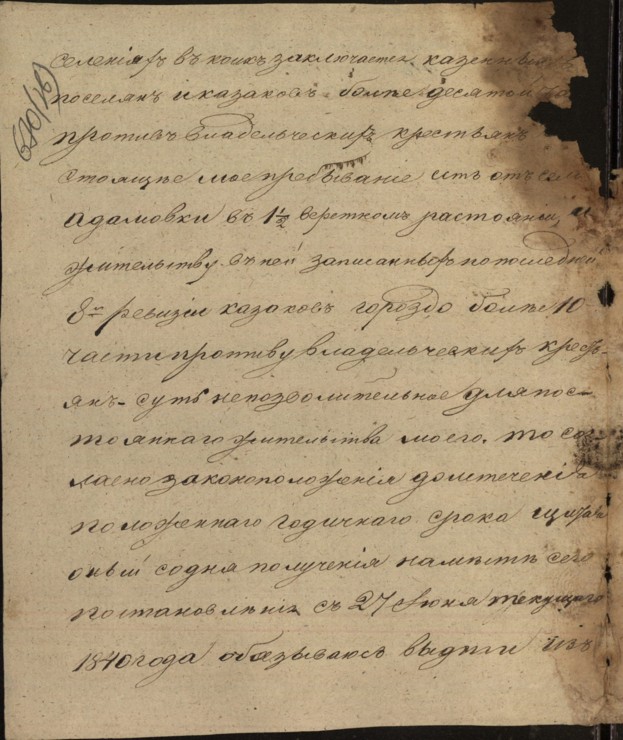 селеніяхъ въ коихъ заключается казенныхъ
поселянъ и казаковъ болѣе десятой
противъ владельческихъ крестьянъ
стоящѣе мое пребываніе отъ сел
Адамовки въ 1½ верстномъ растояніи, и
жительству въ ней записанныхъ по последней
8й ревизіи казаковъ гораздо болѣе 10
части противу владельческихъ кресть-
янъ - суть непозволительное для пос-
тояннаго жительства моего, то сог-
ласно законоположенія до истеченія
положеннаго годичнаго срока щитая
оный со дня полученія на мѣстѣ сего
постановленія съ 27 Іюня текущаго
1840 года обязываюсь выдти изъ